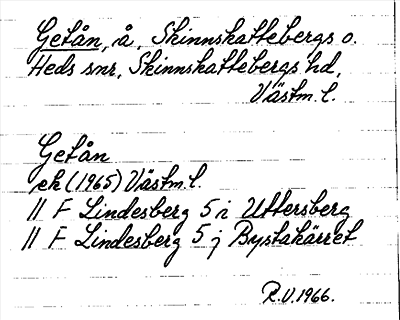 Getån, å, Skinnskattebergs o.
Heds snr, Skinnskattebergs hd,
Västm. l.
Getån
ek (1965) Västm. l.
// F Lindesberg 5 i Uttersberg
// F Lindesberg 5 j Bystakärret
R.V. 1966.